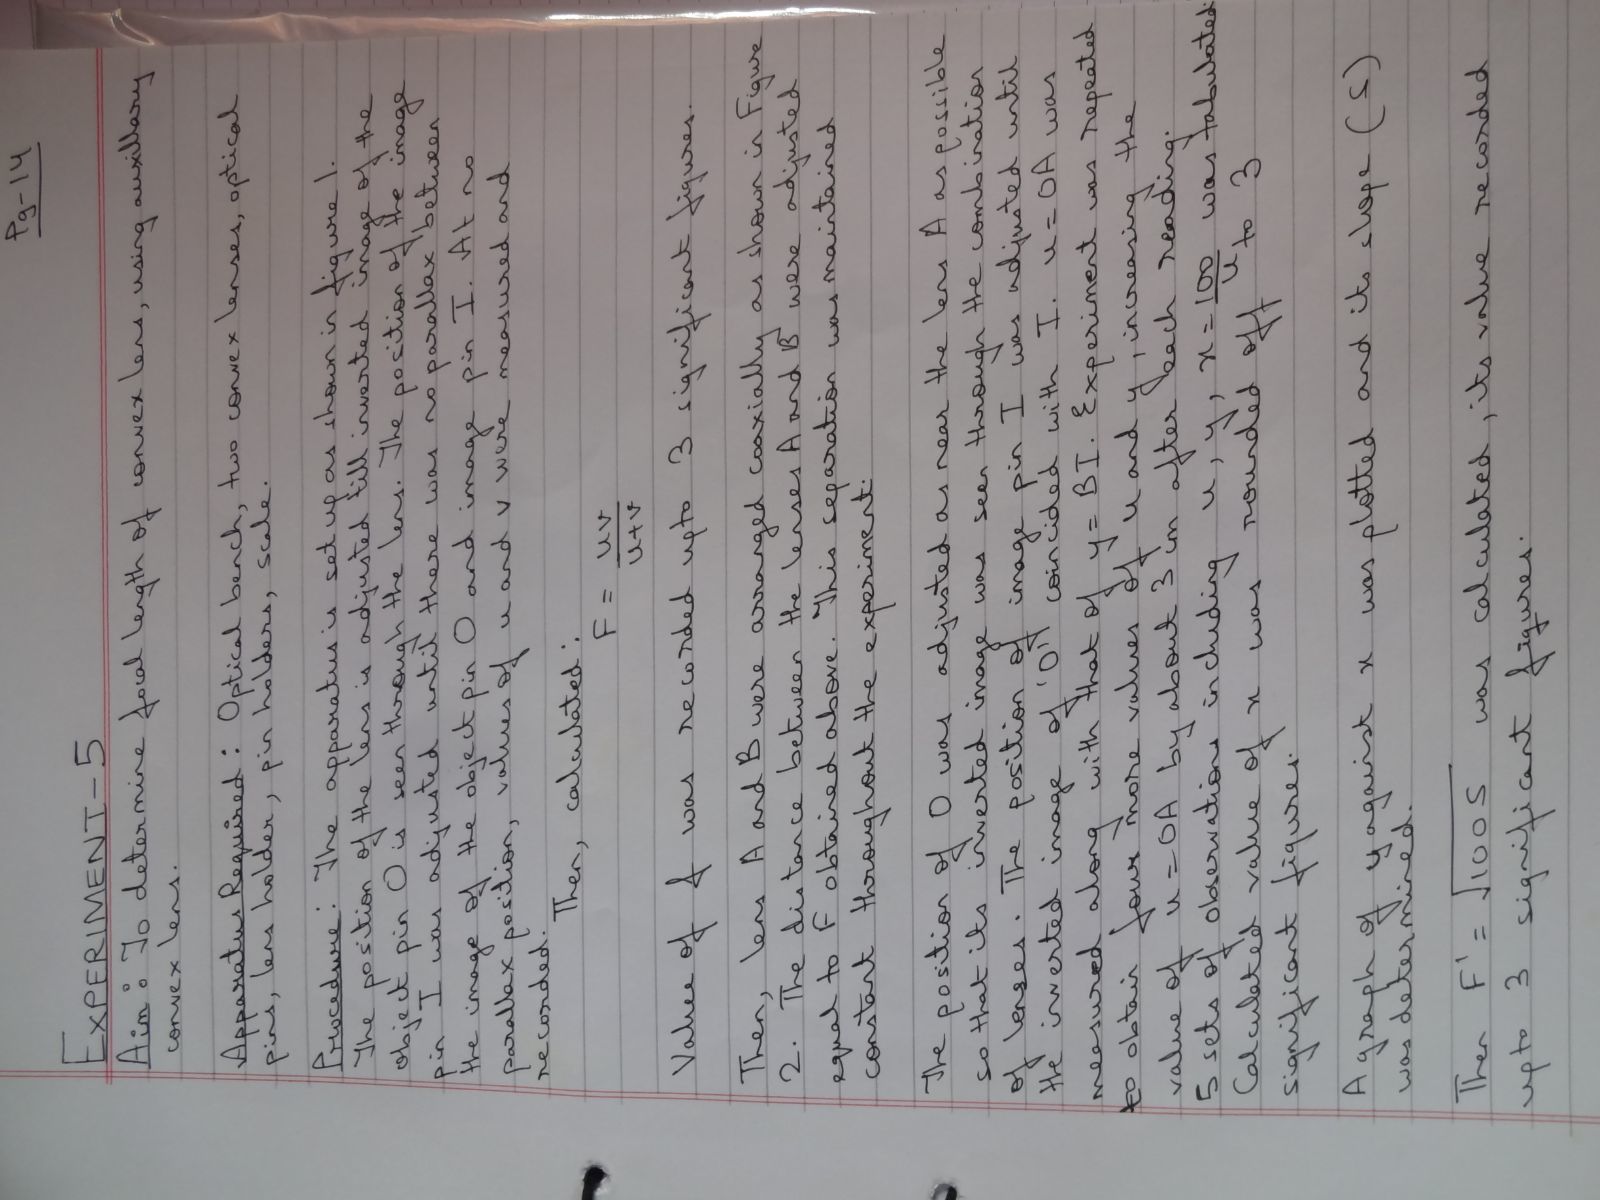 Pg-14
EXPERIMENT-5
Aim: To determine focal length of convex lens, using auxillary
convex lens.
Apparatus Required: Optical bench, two convex lenses, optical
pins, lens holder, pin holders, scale.
Procedure: The apparatus is set up as shown in figure 1.
The position of the lens is adjusted till inverted image of the
object pin O is seen through the lens. The position of the image
pin I was adjusted until there was no parallax between
the image of the object pin O and image pin I. At no
parallax position, values of u and v were measured and
recorded.
Then, calculated:
F = uv/u+v
Value of f was recorded upto 3 significant figures.
Then, lens A and B were arranged coaxially as shown in Figure
2. The distance between the lenses A and B were adjusted
equal to F obtained above. This separation was maintained
constant throughout the experiment.
The position of O was adjusted as near the lens A as possible
so that its inverted image was seen through the combination
of lenses. The position of image pin I was adjusted until
the inverted image of 'O' coincided with I. u = OA was
measured along with that of y = BI. Experiment was repeated
to obtain four more values of u and y, increasing the
value of u = OA by about 3 cm after each reading.
5 sets of observations including u, y, x = 100/u was tabulated.
Calculated value of x was rounded off to 3
significant figures.
A graph of y against x was plotted and its slope (S)
was determined.
Then F' = √100S was calculated, its value recorded
upto 3 significant figures.